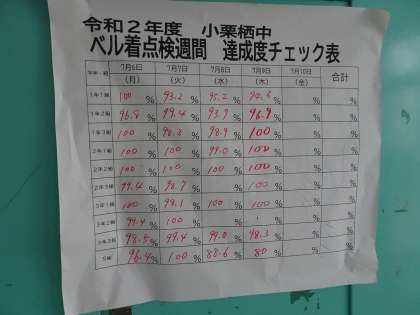 令和２年度　小栗栖中
ベル着点検週間　達成度チェック表
学年・組 7月6日(月) 7月7日(火) 7月8日(水) 7月9日(木) 7月10日(金) 合計
1年1組 100 % 93.2 % 95.2 % % % %
1年2組 96.8 % 99.4 % 93.9 % 96.9 % % %
1年3組 100 % 98.3 % 98.9 % 100 % % %
2年1組 100 % 100 % 99.0 % 100 % % %
2年2組 100 % 100 % % 100 % % %
2年3組 99.4 % 98.9 % % 100 % % %
3年1組 100 % 98.1 % 100 % 100 % % %
3年2組 99.4 % 100 % % % % %
3年3組 98.5 % 99.4 % 99.0 % 98.3 % % %
5組 96.4 % 100 % 88.6 % 80 % % %